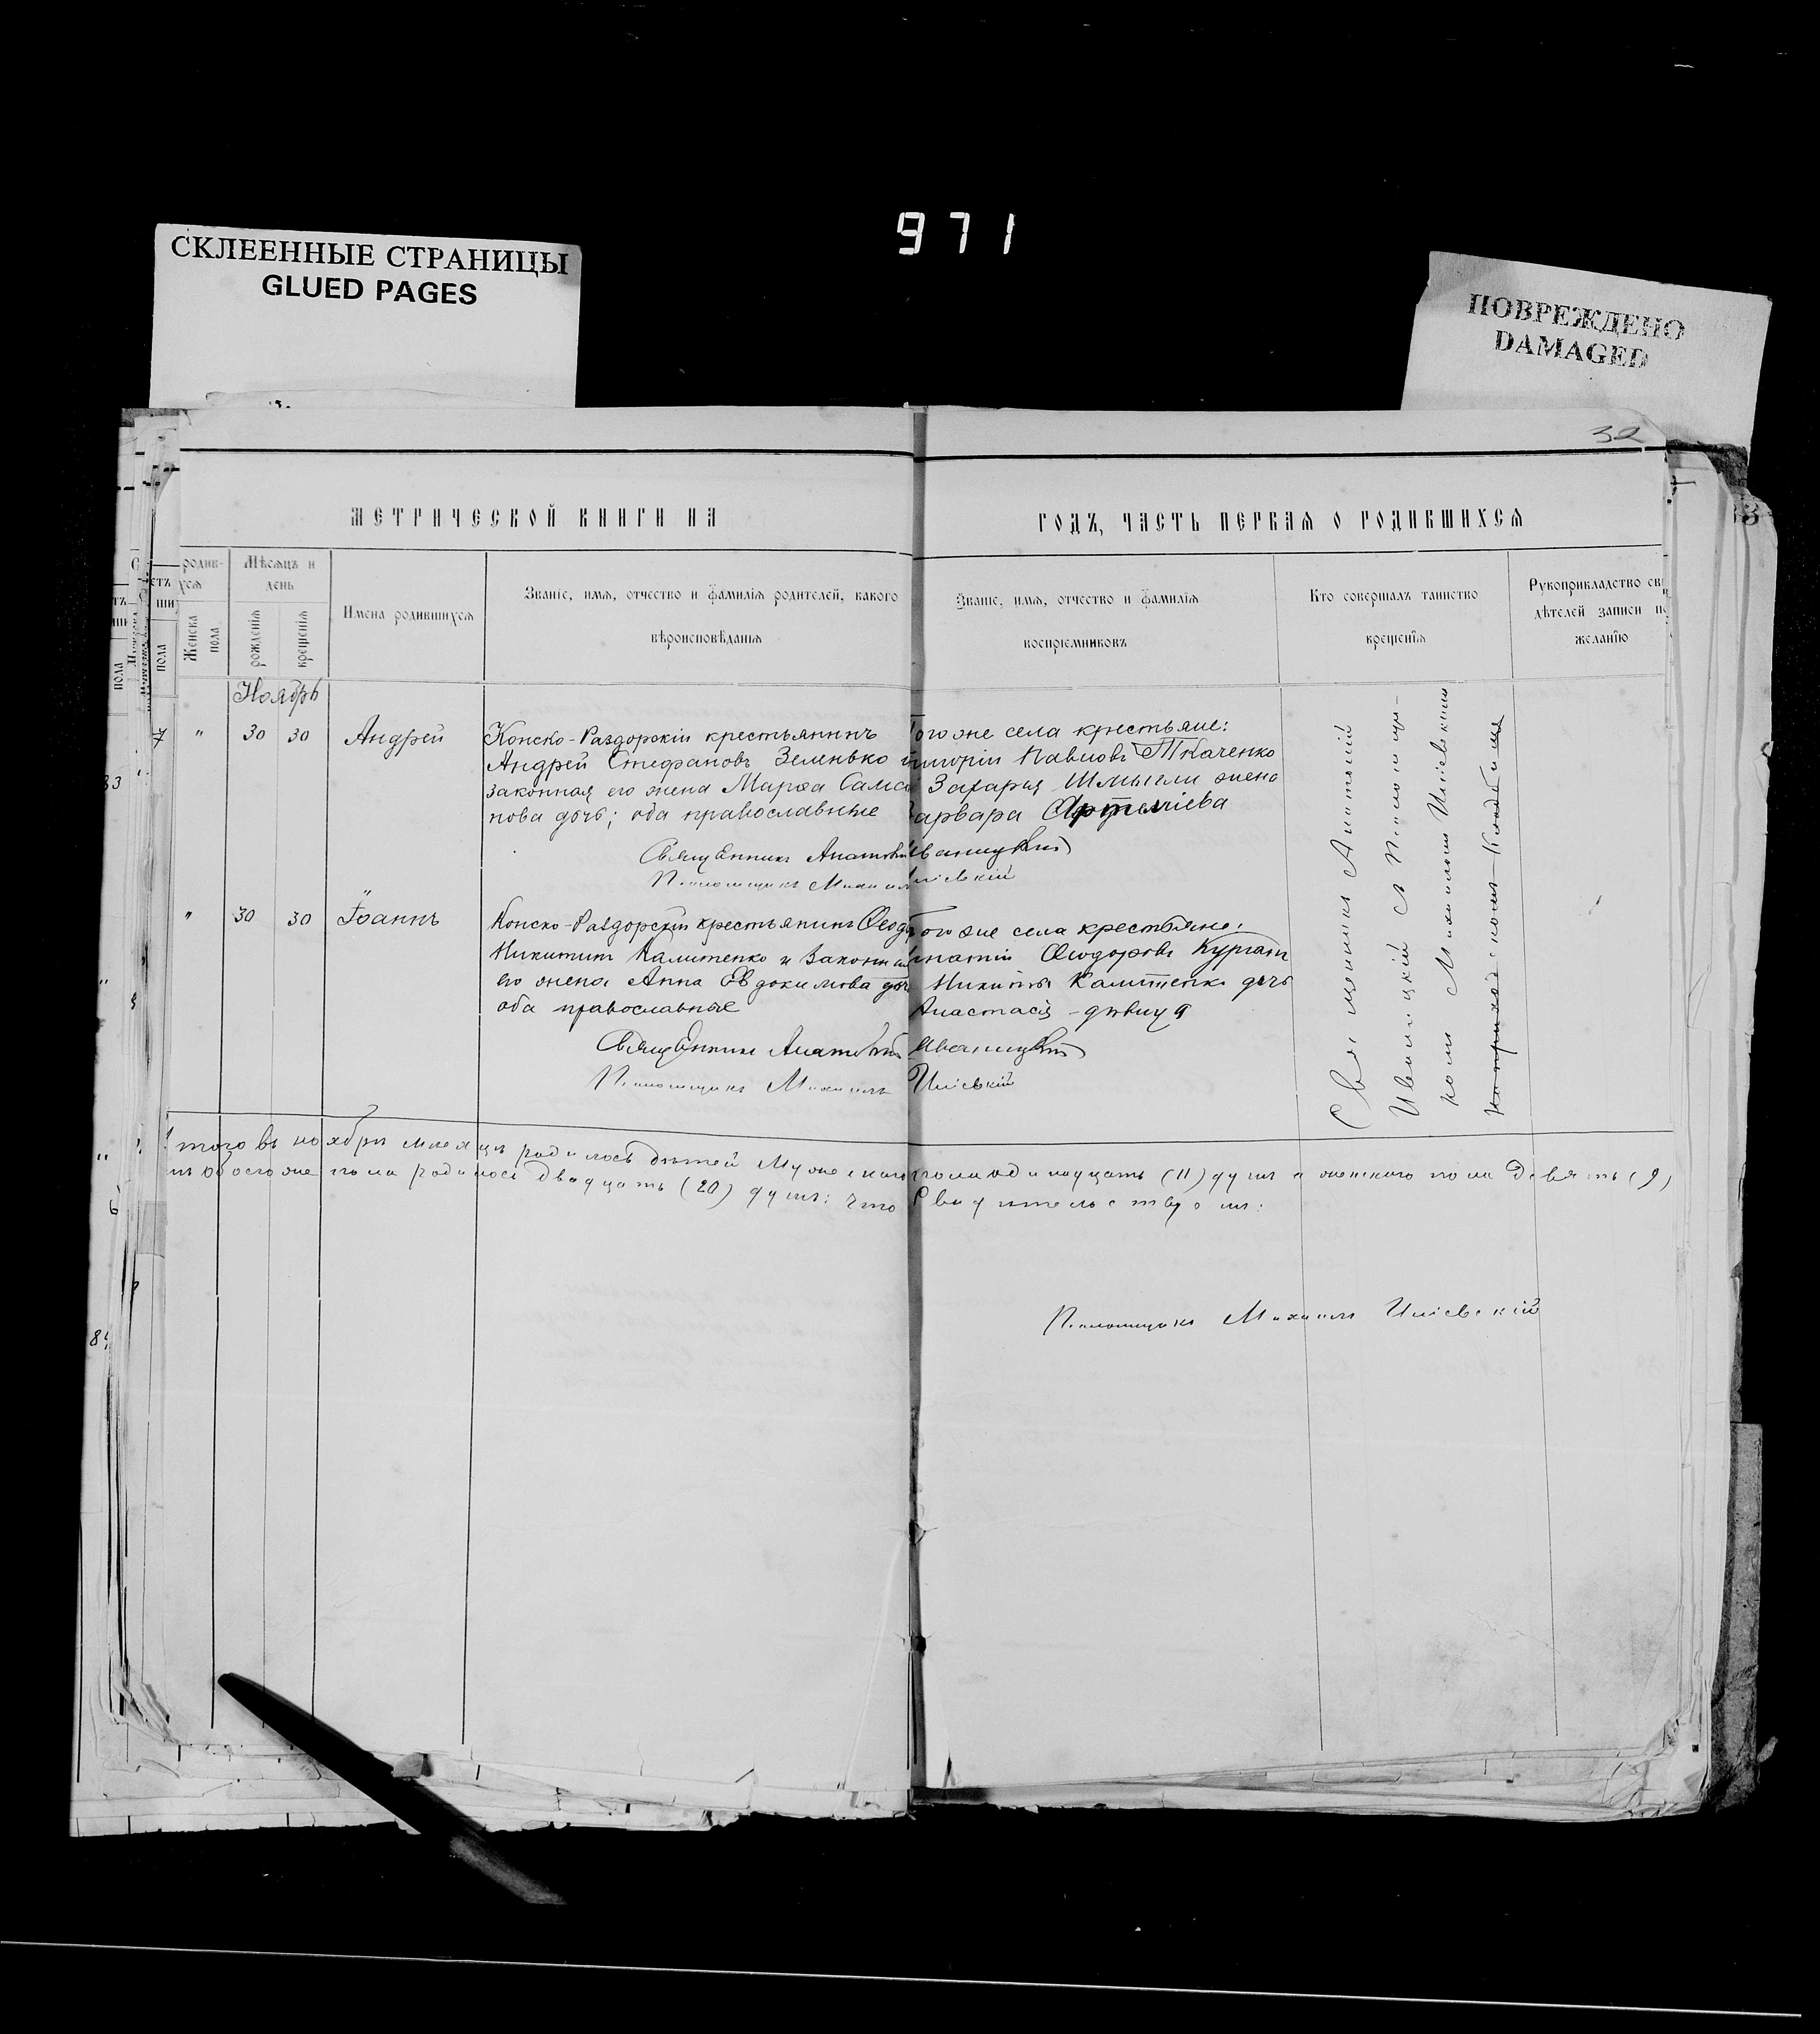 971
СКЛЕЕННЫЕ СТРАНИЦЫ
GLUED PAGES
ПОВРЕЖДЕНО
DAMAGED
32
МЕТРИЧЕСКОЙ КНИГИ НА
ГОДЪ, ЧАСТЬ ПЕРВАЯ О РОДИВШИХСЯ
родив-
хся
Женска
пола
Мѣсяцъ и
день
рожденія
крещенія
Имена родившихся
Званіе, имя, отчество и фамилія родителей, какого
вѣроисповѣданія
Званіе, имя, отчество и фамилія
воспріемниковъ
Кто совершалъ таинство
крещенія
Рукоприкладство сви
дѣтелей записи по
желанію
Ноябрь
7 " 30 30 Андрей
Конско-Раздорскій крестьянинъ
Андрей Стефановъ Зеленько и
законная его жена Марѳа Самсо
нова дочь; оба православные
того же села крестьяне:
Павловъ Ткаченко
Захарія Шмыгли жена
арвара Артеміева
Священникъ Анатолій Иваницкій
Псаломщикъ Михаилъ Иліевскій
" 30 30 Іоаннъ
Конско-Раздорскій крестьянинъ Ѳеодо
Никитинъ Калитенко и законная
его жена Анна Евдокимова дочь
оба православные
Того же села крестьяне:
гнатій Ѳеодоровъ Курганъ
Никиты Калитенко дочь
Анастасія - дѣвица
Священникъ Анатолій Иваницкій
Псаломщикъ Михаилъ Иліевскій
Священникъ Анатолій
Иваницкій съ Псаломщи-
комъ Михаиломъ Иліевскимъ
Итого въ ноябрѣ мѣсяцѣ родилось дѣтей мужескаго пола одинадцать (11) душъ и женскаго пола девять (9)
обоего же пола родилось двадцать (20) душъ: что свидѣтельствуемъ:
Псаломщикъ Михаилъ Иліевскій